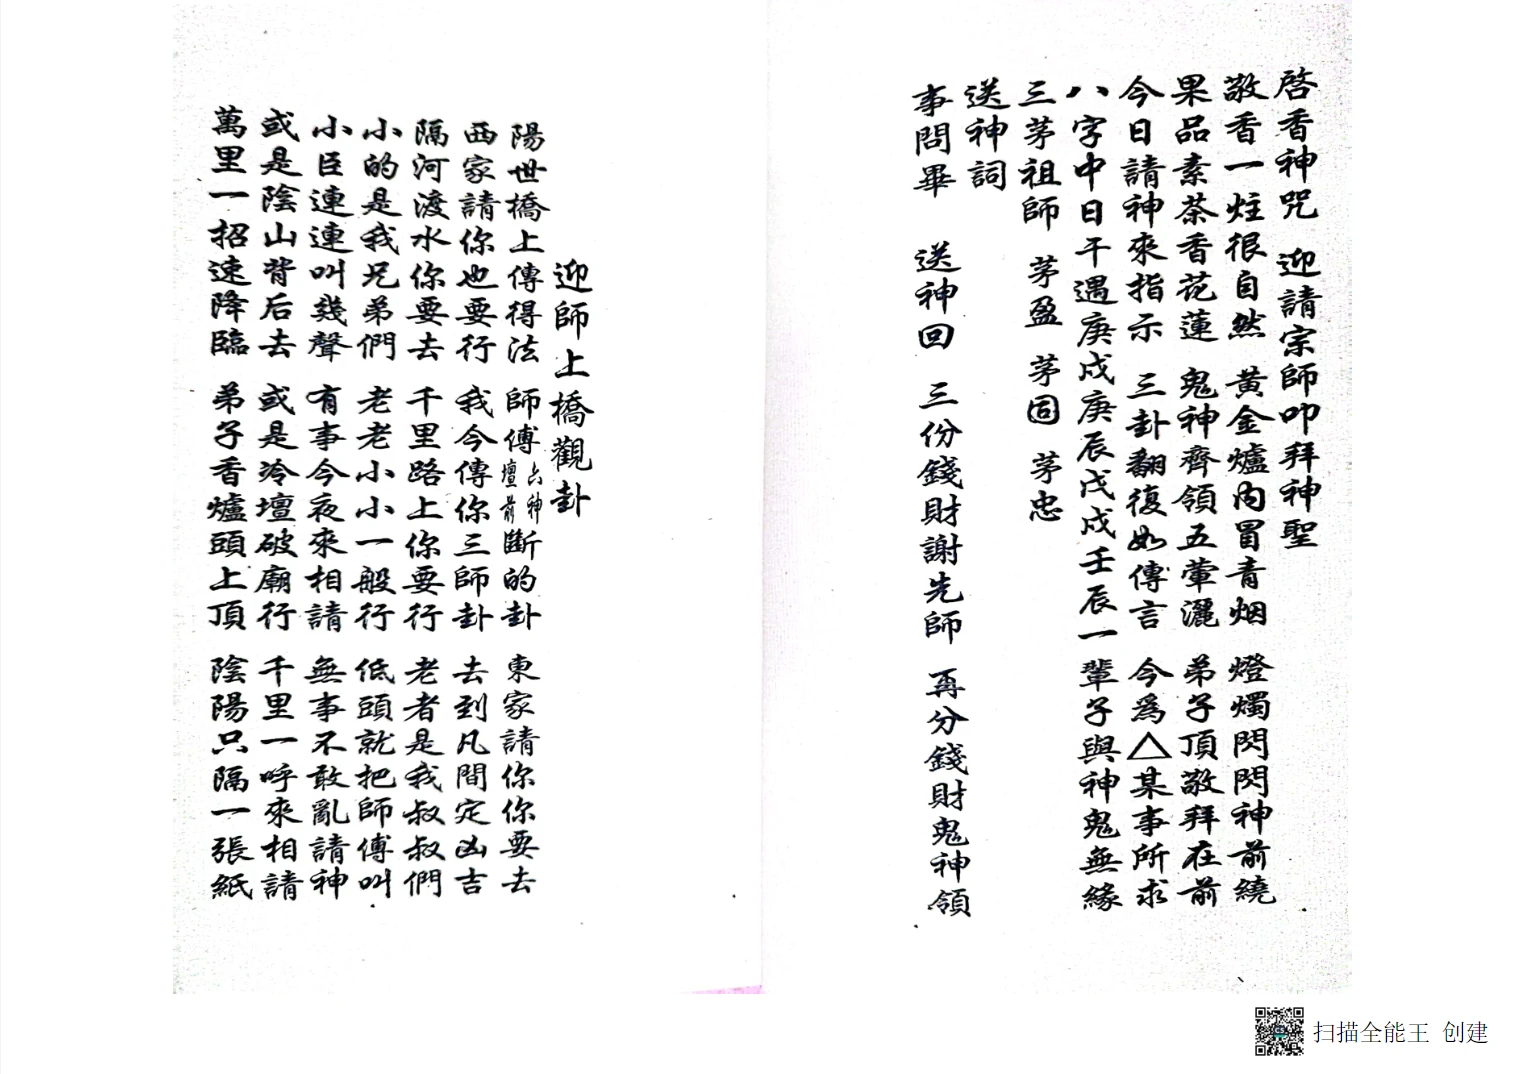 啓香神咒 迎請宗師叩拜神聖
敬香一炷很自然 黃金爐內冒青烟 燈燭閃閃神前繞
果品素茶香花蓮 鬼神齊領五葷灑 弟子頂敬拜在前
今日請神來指示 三卦翻復如傳言 今爲△某事所求
八字中日干遇庚戌庚辰戊戌壬辰一輩子與神鬼無緣
三茅祖師 茅盈 茅固 茅忠
送神詞
事問畢 送神回 三份錢財謝先師 再分錢財鬼神領
迎師上橋觀卦
陽世橋上傳得法 師傅六神壇前斷的卦 東家請你你要去
西家請你也要行 我今傳你三師卦 去到凡間定凶吉
隔河渡水你要去 千里路上你要行 老者是我叔叔們
小的是我兄弟們 老老小小一般行 低頭就把師傅叫
小臣連連叫幾聲 有事今夜來相請 無事不敢亂請神
或是陰山背后去 或是冷壇破廟行 千里一呼來相請
萬里一招速降臨 弟子香爐頭上頂 陰陽只隔一張紙
扫描全能王 创建